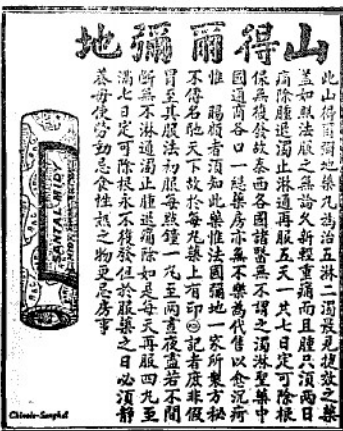 山得爾彌地
此山得爾彌地藥丸為治五淋二濁最見捷效之藥
蓋如照法服之無論久新輕重痛而且腫只須兩日
痛除腫退濁止淋通再服五天一共七日定可除根
保無後發故泰西各國諸醫無不謂之濁淋聖藥中
國通商各口一總藥房亦無不樂為代售以愈沉疴
惟 賜顧者須知此藥惟法國彌地一家所製方秘
不傳名馳天下故於每丸藥上有印記者庶非假
冒至其服法初服每點鐘一丸至兩晝夜盡若不間
斷無不淋通濁止腫退痛除如是每天再服四丸至
滿七日定可除根永不復發但於服藥之日必須靜
養毋使勞動忌食性之物更忌房事
SANTAL MIDY
Chinois-Sanghaï